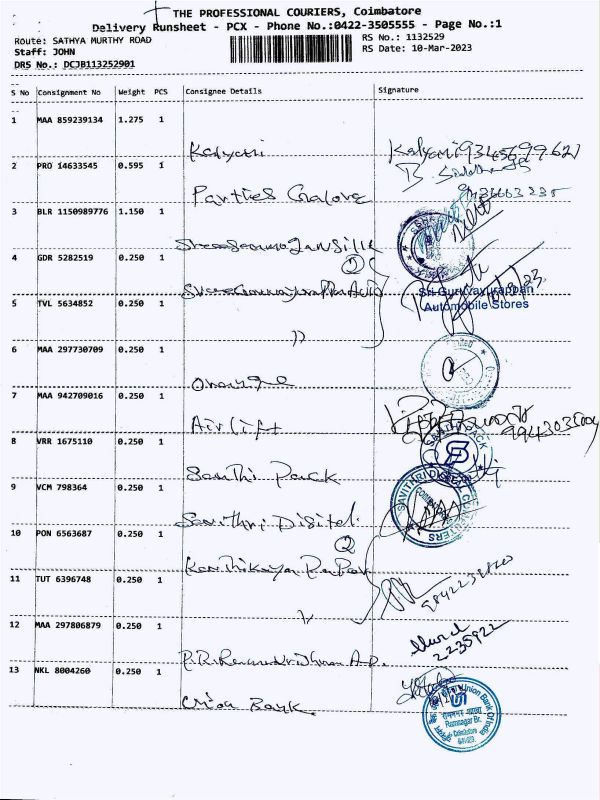 THE PROFESSIONAL COURIERS, Coimbatore
Delivery Runsheet - PCX - Phone No.:0422-3505555 - Page No.:1
Route: SATHYA MURTHY ROAD
RS No.: 1132529
Staff: JOHN
RS Date: 10-Mar-2023
DRS No.: DCJB113252901
S No Consignment No Weight PCS Consignee Details Signature
1 MAA 859239134 1.275 1
Kalyani Kalyani
2 PRO 14633545 0.595 1
Parties Galore
3 BLR 1150989776 1.150 1
4 GDR 5282519 0.250 1
2
Sri Guruvayurappan
Automobile Stores
5 TVL 5634852 0.250 1
"
6 MAA 297730709 0.250 1
Orange
7 MAA 942709016 0.250 1
Airlift
8 VRR 1675110 0.250 1
Santhi Pack
9 VCM 798364 0.250 1
Savithri Digital
10 PON 6563687 0.250 1
2
11 TUT 6396748 0.250 1
12 MAA 297806879 0.250 1
2235922
13 NKL 8004260 0.250 1
Union Bank
Union Bank Of India
Ramnagar Br.
Coimbatore